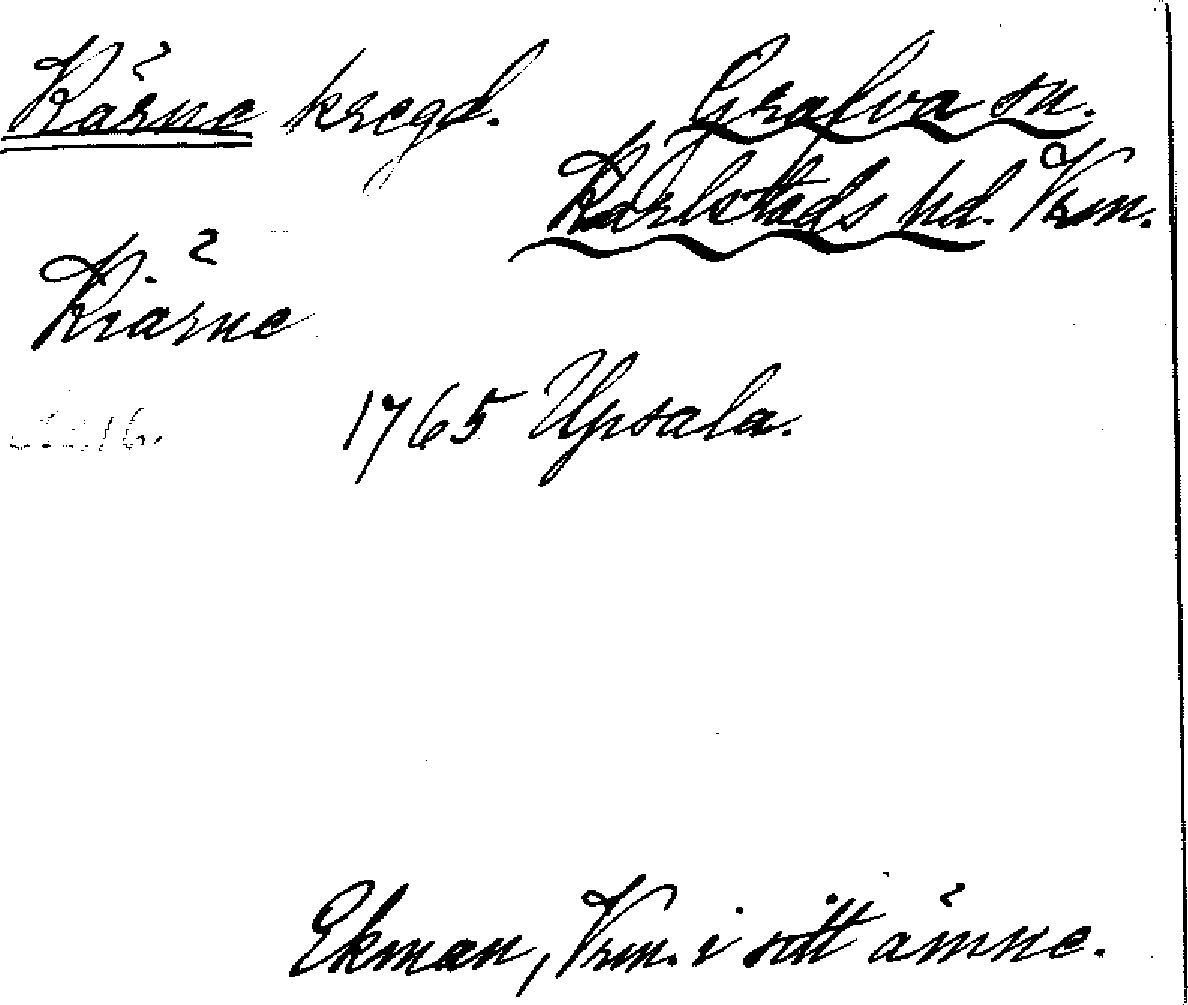 Kärne kregd. Gralva sn.
Karlstads hd. Vrm.
Kiärne
1765 Upsala.
Ekman, Vrm. i sitt ämne.